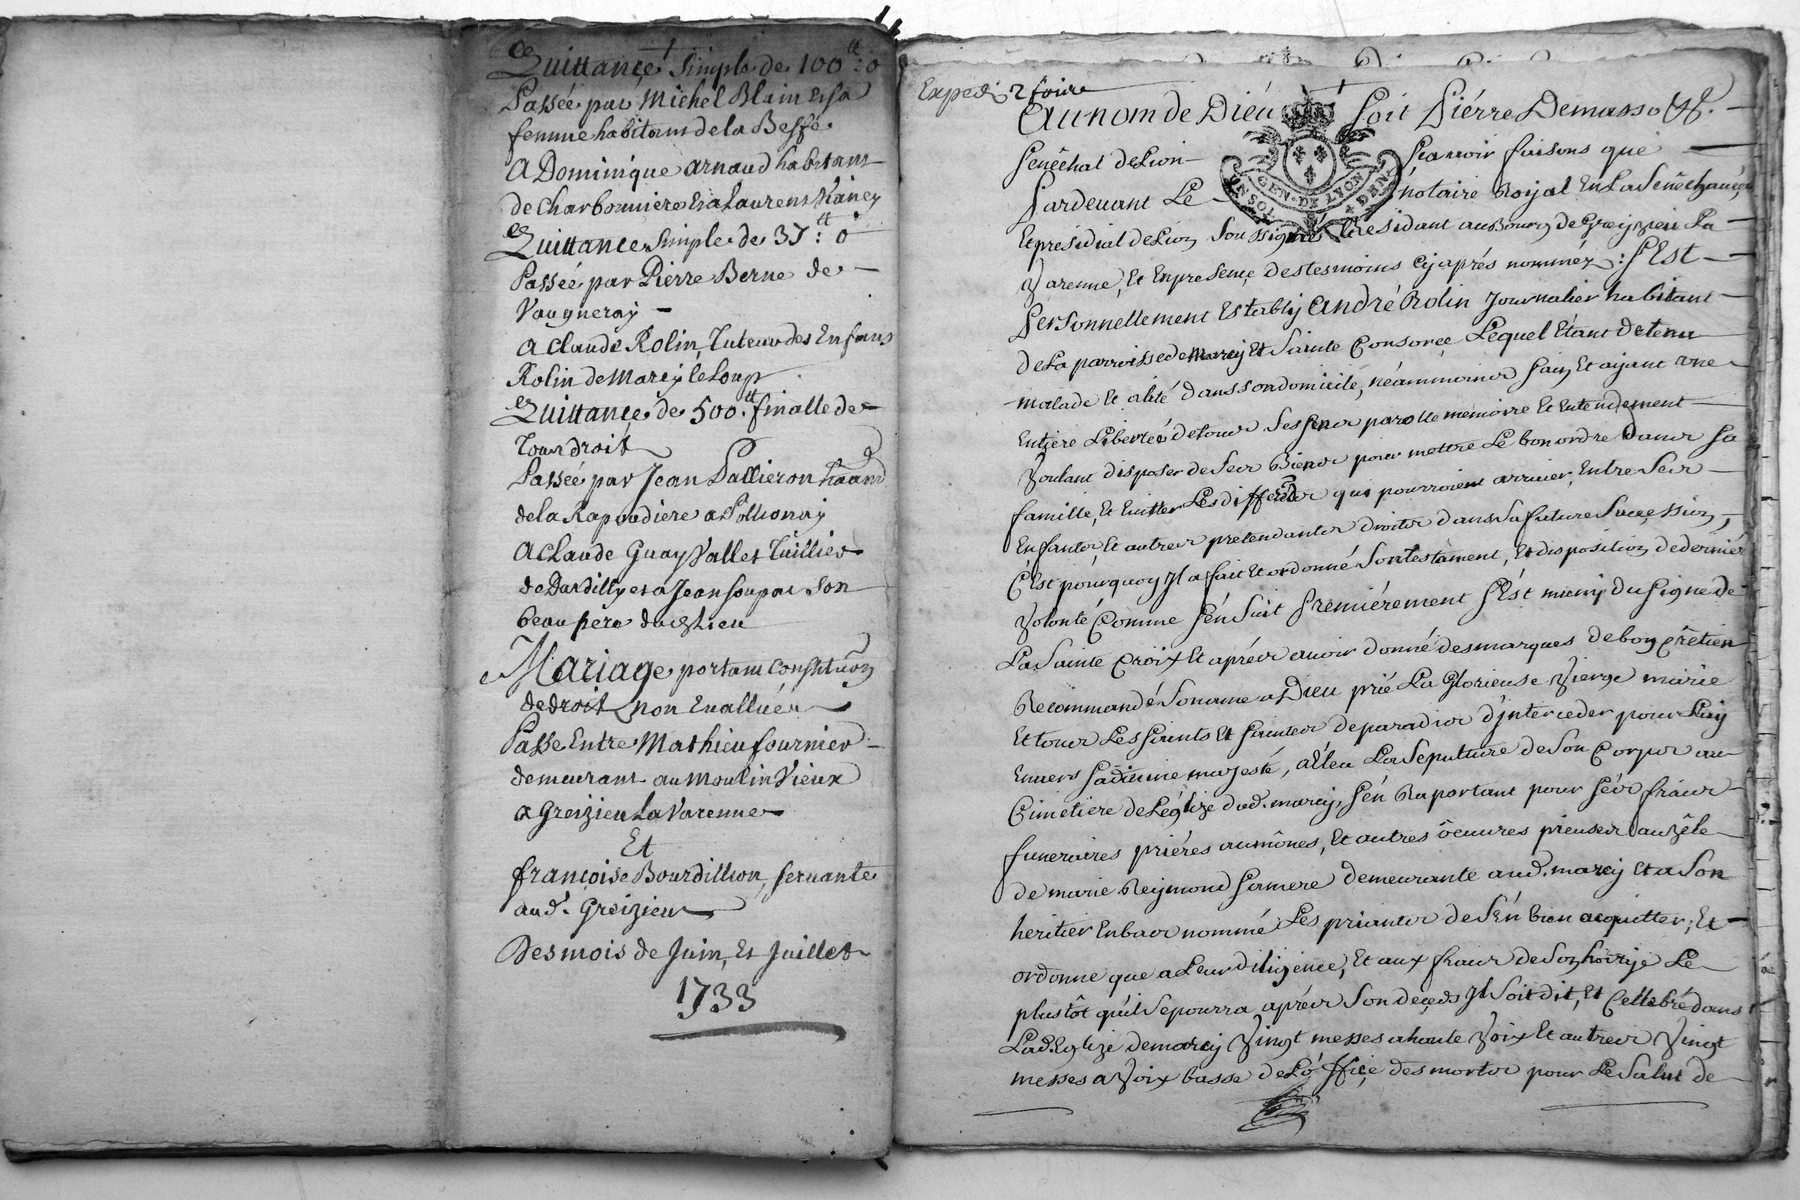 Quittance simple de 100tt: 0
Passée par Michel Blain et sa
femme habitans de la Besse
A Dominique Arnaud habitant
de Charbonniere et a Laurens Raney
Quittance simple de 37tt: 0
Passée par Pierre Berne de
Vaugneray
A Claude Rolin, Tuteur des Enfans
Rolin de Marcy le Loup
Quittance de 500tt finalle de
Tous droits
Passée par Jean Pallieron
de la Rapaudiere a Pollionay
A Claude Guay Vallet Tuillier
de Dardilly et a Jean Soupat son
beau pere dud. Lieu
Mariage portant Constitu͠on
de droits non Evallués
Passé Entre Mathieu fournier
demeurant au Moulin Vieux
a Greizieu La Varenne
Et
françoise Bourdillion, servante
aud. Greizieu
Des mois de Juin, Et Juillet
1733
Expedié 2 foix
Au nom de Dieu Soit Piérre Demasso
Senêchal de Lion Sçavoir faisons que
Pardevant Le notaire Roijal En La Senêchaucée
GEN. DE LYON
UN SOL
Et présidial de Lion Soussigné Residant au Bourg de Greizieu La
Varenne, Et En presence des tesmoins cy aprés nomméz: S'Est
Personnellement Estably André Rolin Journalier habitant
de La parroisse de Marcy Et Sainte Consorce Lequel Etant detenu
malade Et alité dans son domicile, néammoins Sain Et aijant une
Entiére Liberté de tous Ses Sens parolle memoire Et Entendement
Voulant disposer de Ses Biens pour mettre Le bon ordre dans Sa
famille, Et Eviter Les differents qui pourroient arriver, Entre Ses
Enfants, Et autres pretendants droits dans Sa future Succession,
C'Est pourquoy Il a fait Et ordonné Son testament, Et disposition de derniére
Volonté Comme S'én Suit Premiérement S'Est muny du Signe de
La Sainte Croix Et aprés avoir donné des marques de bon Crêtien
Recommandé Son ame a Dieu prié La Glorieuse Vierge marie
Et tous Les Saints Et Saintes de paradis d'Interceder pour Luy
Envers Sa divine majesté, a Eleu La Sepulture de Son Corps au
Cimetiere de L'église dud. marcy, S'én Raportant pour Sés frais
funeraires priéres aumônes, Et autres ôeuvres pieuses au zêle
de marie Reijmond Sa mere demeurante aud. marcy Et a Son
heritier En bas nommé Les priants de S'én bien acquitter, Et
ordonne que a Leur diligence, Et aux frais de Son hoirije Le
plustôt qu'il Se pourra aprés Son decéds Il Soit dit, Et Cellebré dans
Lad. Eglize de marcy Vingt messes a haute Voix Et autres Vingt
messes a Voix basse de L'office des morts pour Le Salut de